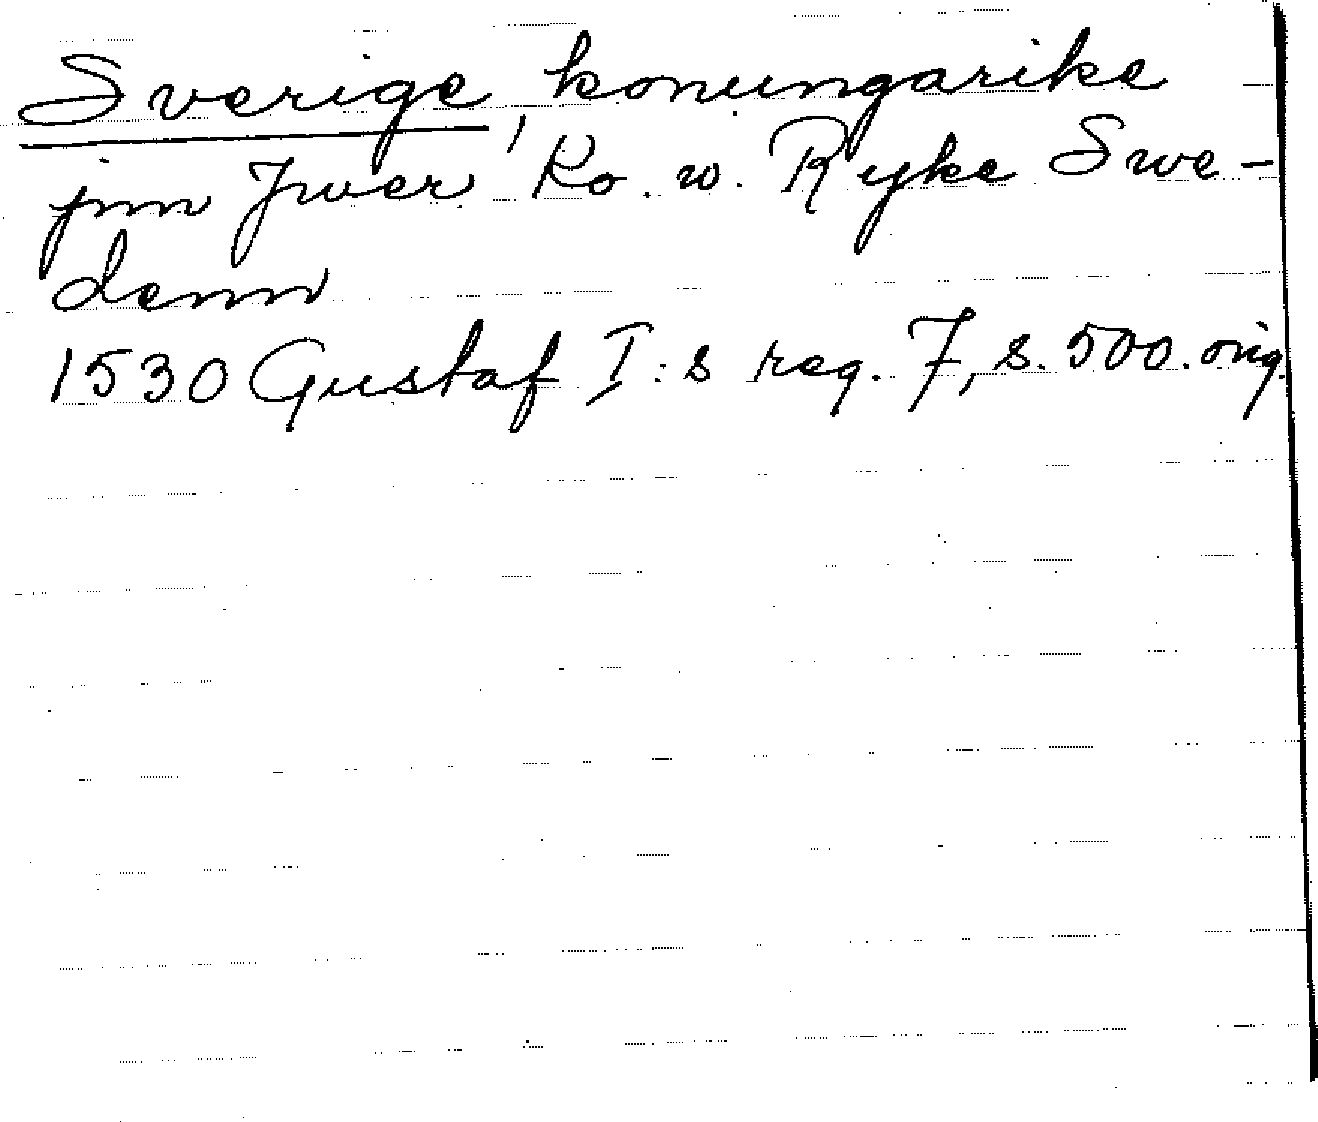 Sverige, konungarike
jnn Jwer Ko. w. Ryke Swe-
denn
1530 Gustaf I:s reg. 7, s. 500. orig.